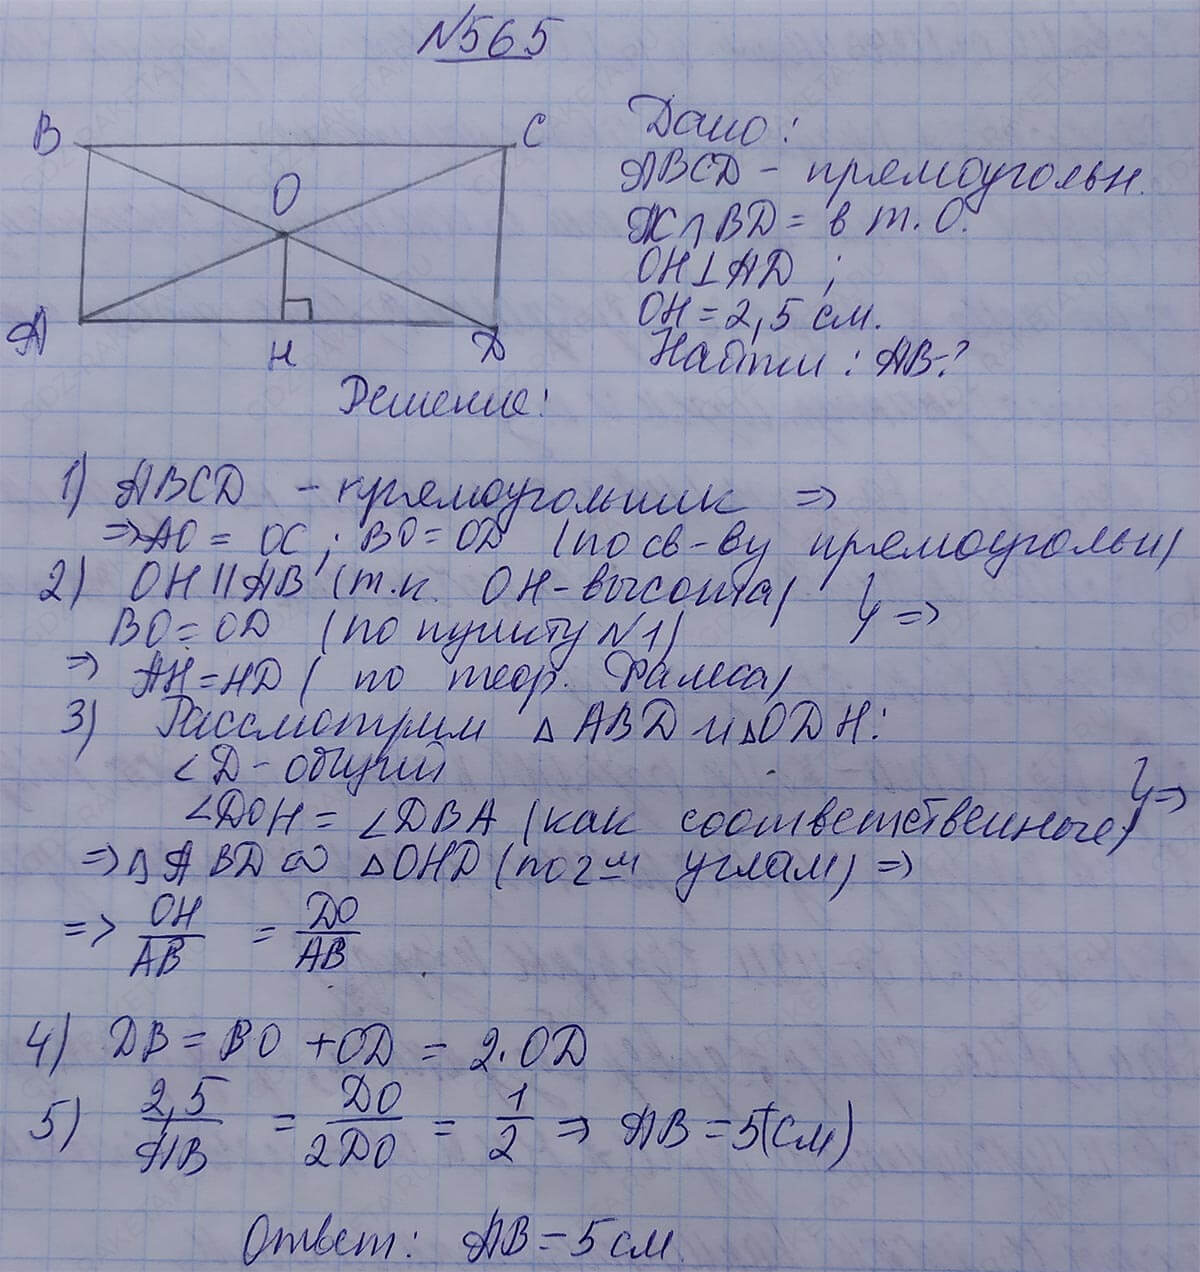 №565
B
C
O
A
H
D
Дано:
ABCD - прямоугольн.
AC ∩ BD = в т. O.
OH ⊥ AD ;
OH = 2,5 см.
Найти : AB-?
Решение:
1) ABCD - прямоугольник =>
=> AO = OC ; BO = OD (по св-ву прямоугольн)
2) OH || AB (т.к. OH - высота) } =>
BO = OD (по пункту №1)
=> AH = HD ( по теор. Фалеса)
3) Рассмотрим △ ABD и △ODH:
∠D - общий
∠DOH = ∠DBA (как соответственные) } =>
=> △ ABD ∞ △OHD (по 2м углам) =>
=> OH/AB = DO/AB
4) DB = BO + OD = 2·OD
5) 2,5/AB = DO/2DO = 1/2 => AB = 5(см)
Ответ: AB = 5 см.